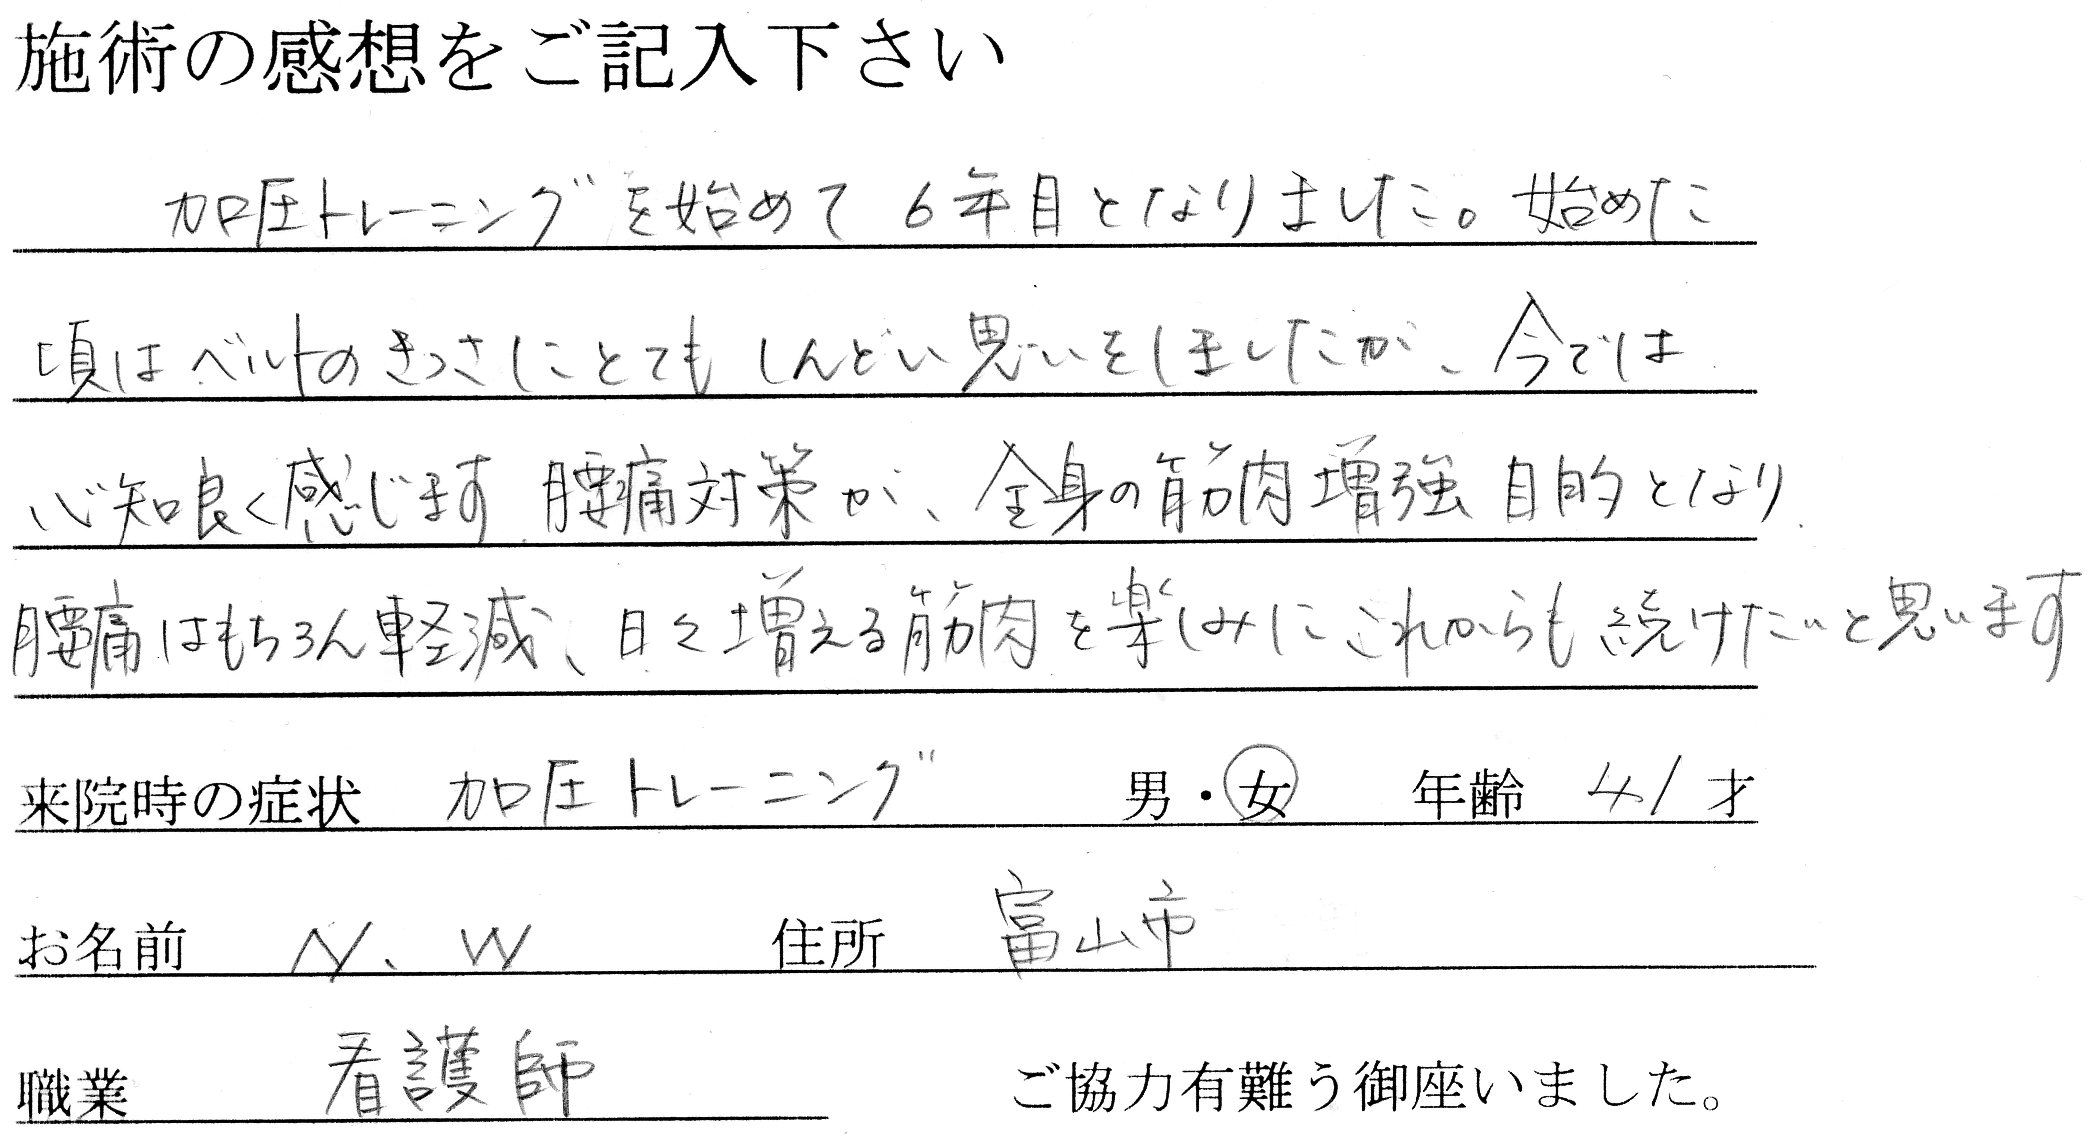 施術の感想をご記入下さい
加圧トレーニングを始めて6年目となりました。始めた
頃はベルトのきつさにとてもしんどい思いをしましたが、今では
心知良く感じます.腰痛対策が、全身の筋肉増強目的となり
腰痛はもちろん軽減、日々増える筋肉を楽しみにこれからも続けたいと思います
来院時の症状 加圧トレーニング 男・女 年齢 41才
お名前 N、W 住所 富山市
職業 看護師 ご協力有難う御座いました。